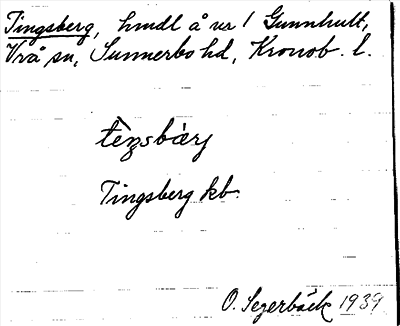 Tingsberg, hmdl å nr 1 Gunnhult,
Vrå sn, Sunnerbo hd, Kronob. l.
Tingsberg kb.
O. Segerbäck 1939